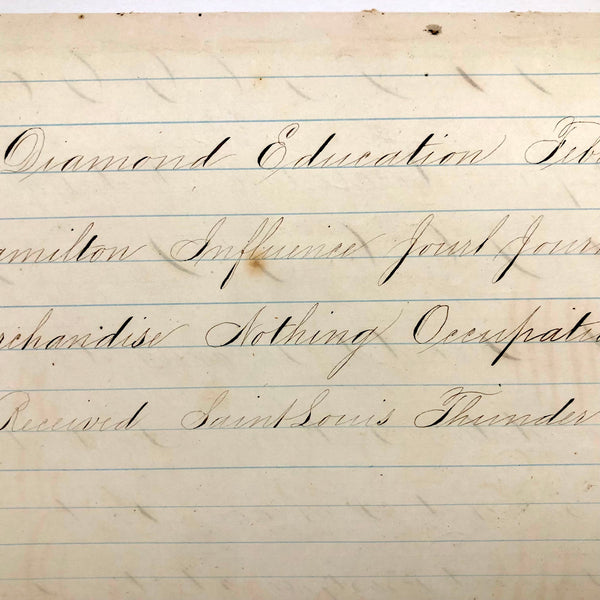 Diamond Education Feb
amilton Influence Jourl Journ
rchandise Nothing Occupati
Received Saint Louis Thunder